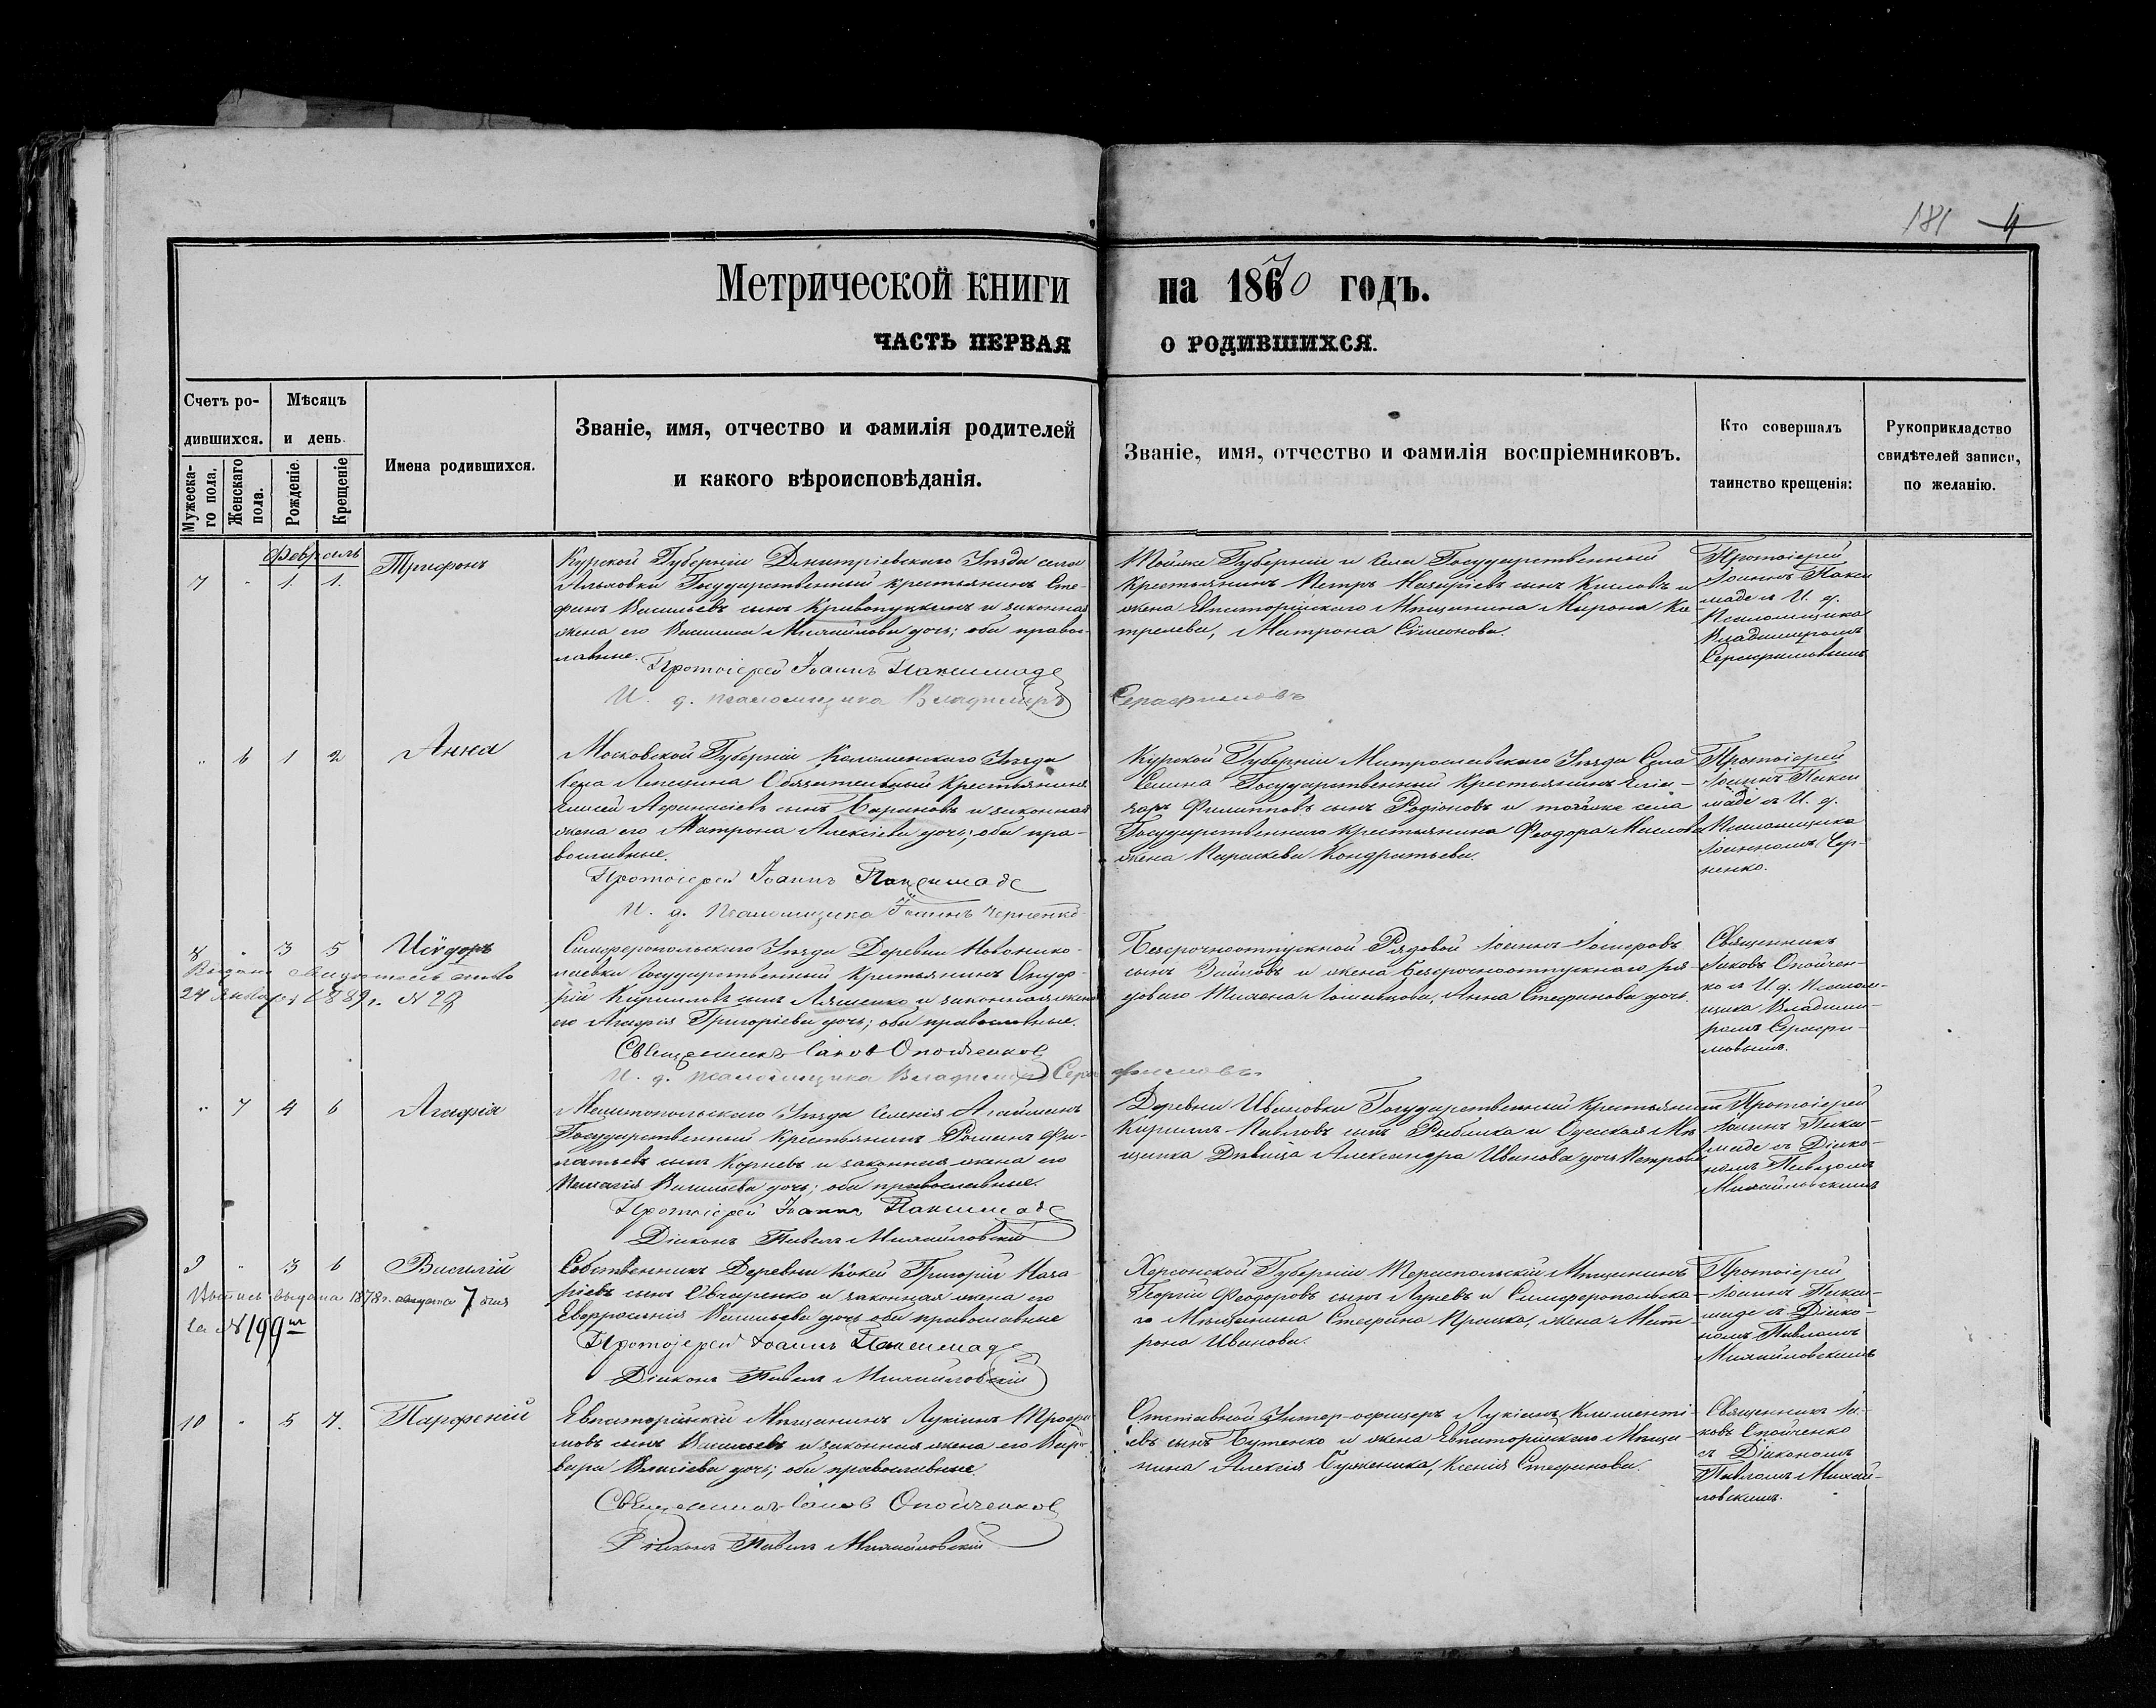 181 4
Метрической книги на 1870 годъ.
ЧАСТЬ ПЕРВАЯ О РОДИВШИХСЯ.
Счетъ ро-
дившихся.
Мужеска-
го пола.
Женскаго
пола.
Мѣсяцъ
и день.
Рожденіе.
Крещеніе
Имена родившихся.
Званіе, имя, отчество и фамилія родителей
и какого вѣроисповѣданія.
Званіе, имя, отчество и фамилія воспріемниковъ.
Кто совершалъ
таинство крещенія:
Рукоприкладство
свидѣтелей записи,
по желанію.
Февраль
7 " 1. 1. Трифонъ
Курской Губерніи Дмитріевскаго Уѣзда села
Государственный крестьянинъ Сте-
фанъ Васильевъ сынъ Кривопуцкинъ и законная
жена его Василиса Михайлова дочь; оба правос-
лавные.
Протоіерей Іоаннъ Пакси­маде
И. д. псаломщика Владиміръ Серафимовъ
Тойже Губерніи и села Государственный
Крестьянинъ Петръ сынъ и
жена Евпаторійскаго Мѣщанина Мирона Ка-
трелева, Матрона Сѵмеонова.
Протоіерей
Іоаннъ Пакси
маде и И. д.
Псаломщика
Владиміромъ
Серафимовымъ
" 6 1 2 Анна
Московской Губерніи Коломенскаго Уѣзда
Села Обязательный Крестьянинъ
Елисей Афанасіевъ сынъ Барановъ и законная
жена его Матрона Алексіева дочь; оба пра-
вославные.
Протоіерей Іоаннъ Паксимаде
И. д. Псаломщика Іоаннъ Черненко
Курской Губерніи Уѣзда Села
Селина Государственный Крестьянинъ Елиа-
заръ Филипповъ сынъ Родіоновъ и тойже села
Государственнаго крестьянина Феодора Маслова
жена Параскева Кондратьева.
Протоіерей
Іоаннъ Пакси
маде и И. д.
Псаломщика
Іоанномъ Чер-
ненко.
8 " 3 5 Исѵдоръ
Выдано свидѣтельство
24 Января 1889 г. № 29
Симферопольскаго Уѣзда Деревни Новонико-
лаевки Государственный Крестьянинъ Онуф-
рій Кирилловъ сынъ Ляшенко и законная жена
его Агафія Григоріева дочь; оба православные.
Священникъ Іаковъ Опойченковъ
И. д. псаломщика Владиміръ Серафимовъ
Безсрочноотпускной Рядовой Іоаннъ
сынъ Зайцовъ и жена безсрочноотпускнаго ря-
доваго Анна Стефанова дочь.
Священникъ
Іаковъ Опойчен-
ко и И. д. Псалом-
щика Владимі-
ромъ Серафи-
мовымъ.
" 7 4 6 Агафія
Мелитопольскаго Уѣзда Селенія Агайманъ
Государственный Крестьянинъ Романъ
сынъ Корневъ и законная жена его
Пелагія Васильева дочь; оба православные.
Протоіерей Іоаннъ Паксимаде
Діаконъ Павелъ Михайловскій
Деревни Ивановки Государственный Крестьянинъ
Кириллъ Павловъ сынъ Рыбалка и Одесская Мѣ-
щанка Дѣвица Александра Иванова дочь Петрова
Протоіерей
Іоаннъ Пакси-
маде и Діако-
номъ Павломъ
Михайловскимъ
9 " 3 6 Василій
Выпись выдана 1878 г. 7
за № 199
Собственникъ Деревни Кокей Григорій Наза-
ріевъ сынъ Овчаренко и законная жена его
Евфросинія Васильева дочь оба православные
Протоіерей Іоаннъ Паксимаде
Діаконъ Павелъ Михайловскій
Херсонской Губерніи Тираспольскій Мѣщанинъ
Георгій Феодоровъ сынъ и Симферопольска-
го Мѣщанина Стефана жена Мат-
рона Иванова.
Протоіерей
Іоаннъ Пакси-
маде и Діако-
номъ Павломъ
Михайловскимъ
10 " 5 7. Парфеній
Евпаторійскій Мѣщанинъ Лукіанъ Трофи-
мовъ сынъ Васильевъ и законная жена его Вар-
вара дочь; оба православные.
Священникъ Іаковъ Опойченковъ
Діаконъ Павелъ Михайловскій
Отставной Унтер-офицеръ Лукіанъ Климентi-
евъ сынъ Бутенко и жена Евпаторійскаго Мѣща-
нина Алексія Ксенія Стефанова.
Священникъ Іа-
ковъ Опойченко
съ Діакономъ
Павломъ Михай-
ловскимъ.